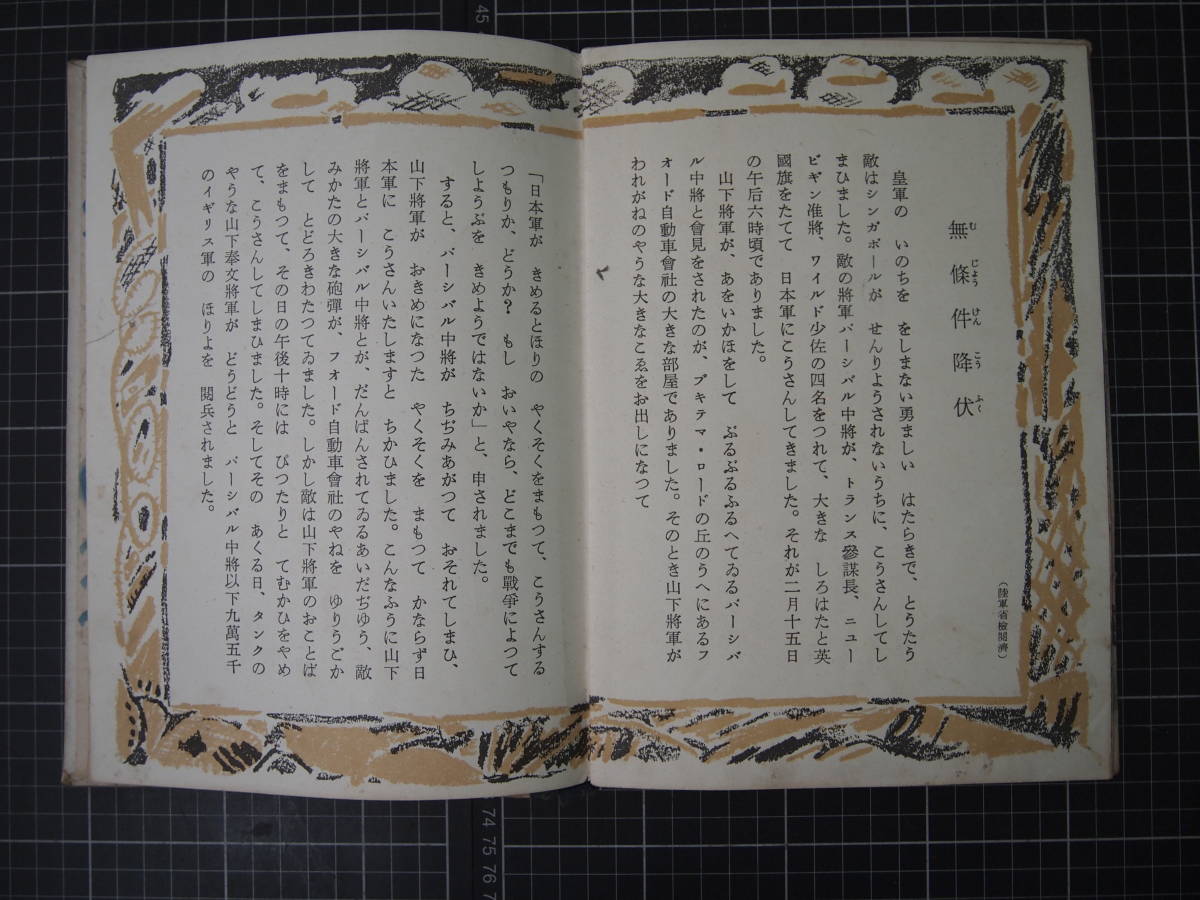 無條件降伏
むじょうけんこうふく
(陸軍省檢閲濟)
皇軍の いのちを をしまない勇ましい はたらきで、とうたう
敵はシンガポールが せんりようされないうちに、こうさんしてし
まひました。敵の將軍パーシバル中將が、トランス參謀長、ニュー
ビギン准將、ワイルド少佐の四名をつれて、大きな しろはたと英
國旗をたてて 日本軍にこうさんしてきました。それが二月十五日
の午后六時頃でありました。
山下將軍が、あをいかほをして ぶるぶるふるへてゐるパーシバ
ル中將と會見をされたのが、ブキテマ・ロードの丘のうへにあるフ
オード自動車會社の大きな部屋でありました。そのとき山下將軍が
われがねのやうな大きなこゑをお出しになつて
「日本軍が きめるとほりの やくそくをまもつて、こうさんする
つもりか、どうか? もし おいやなら、どこまでも戰爭によつて
しようぶを きめようではないか」と、申されました。
すると、パーシバル中將が ちぢみあがつて おそれてしまひ、
山下將軍が おきめになつた やくそくを まもつて かならず日
本軍に こうさんいたしますと ちかひました。こんなふうに山下
將軍とパーシバル中將とが、だんぱんされてゐるあいだぢゆう、敵
みかたの大きな砲彈が、フオード自動車會社のやねを ゆりうごか
して とどろきわたつてゐました。しかし敵は山下將軍のおことば
をまもつて、その日の午後十時には ぴつたりと てむかひをやめ
て、こうさんしてしまひました。そしてその あくる日、タンクの
やうな山下奉文將軍が どうどうと パーシバル中將以下九萬五千
のイギリス軍の ほりよを 閲兵されました。
45
74 75 76